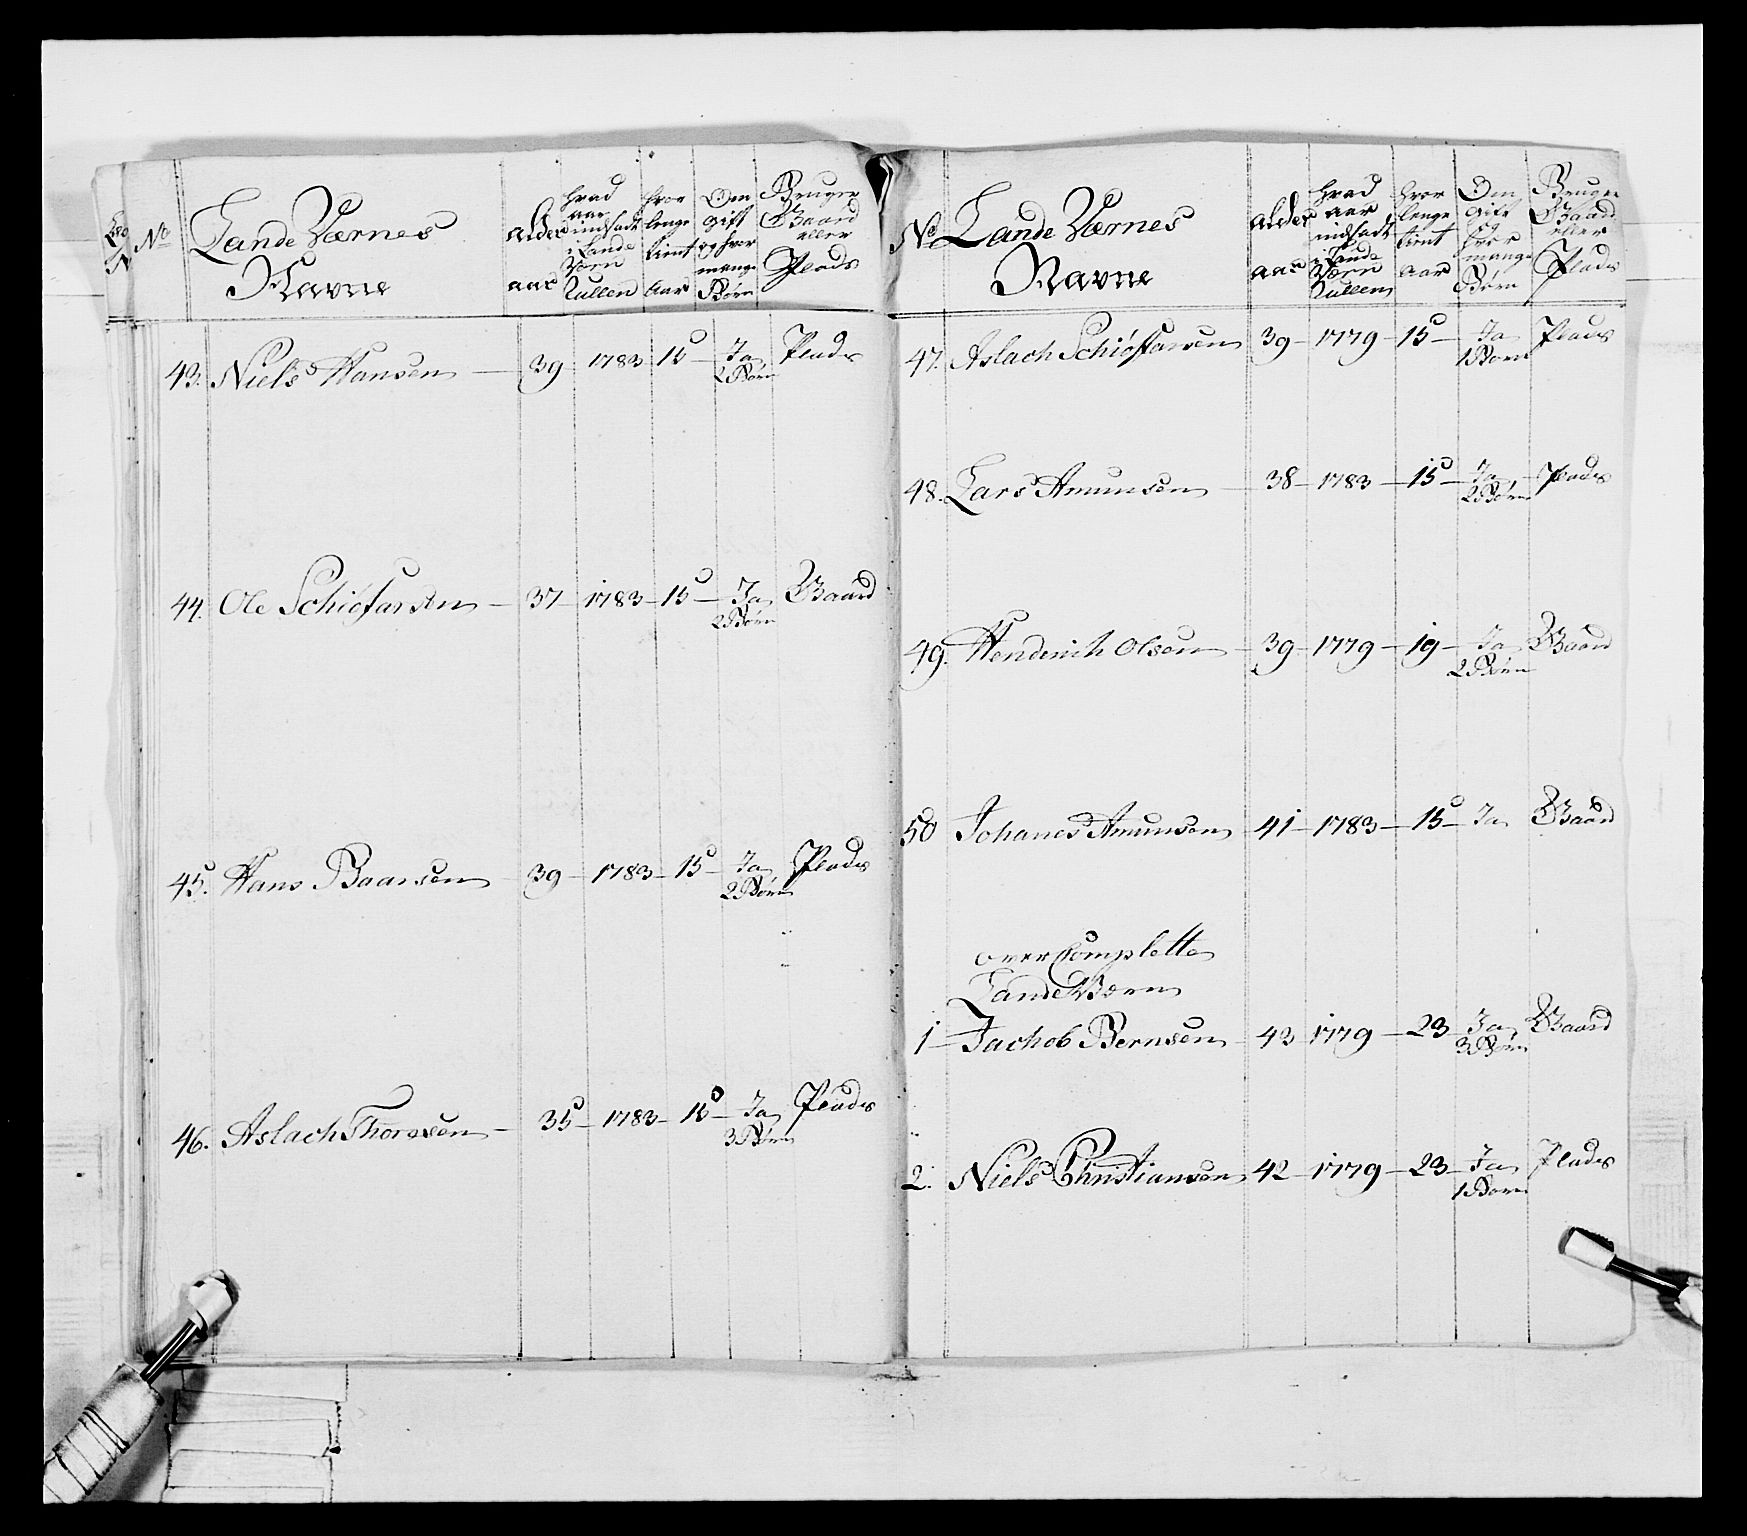 No
Lande Værnes
Navne
Alder
aar
hvad
aar
indsadt
i Lande
Værn
Rullen
hvor
lenge
tient
Aar
Om
gift
og hvor
mange
Børn
Bruger
Gaard
eller
Plads
43. Niels Hansen — 39 1783 15 — Ja Plads
2 Børn
44. Ole Schiøfarsen — 37 — 1783 — 15 — Ja Gaard
2 Børn
45. Hans Baarsen — 39 — 1783 — 15 — Ja Plads
2 Børn
46. Aslach Thoresen — 35 — 1783 — 15 — Ja Plads
3 Børn
No
Lande Værnes
Navne
Alder
aar
hvad
aar
indsadt
i Lande
Værn
Rullen
hvor
lenge
tient
Aar
Om
gift
og
hvor
mange
Børn
Bruger
Gaard
eller
Plads
47. Aslach Schiøstarsen 39 — 1779 — 15 — Ja Plads
1 Barn
48. Lars Amunsen — 38 — 1783 — 15 — Ja Plads
2 Børn
49. Henderich Olsen — 39 1779 — 19 — Ja Gaard
2 Børn
50 Johanes Amunsen 41 — 1783 — 15 — Ja Gaard
over Complette
Lande Værn
1 — Jachob Bernsen — 43 1779 — 23 Ja Gaard
3 Børn
2. Niels Christiansen 42 — 1779 — 23 — Ja Plads
1 Barn